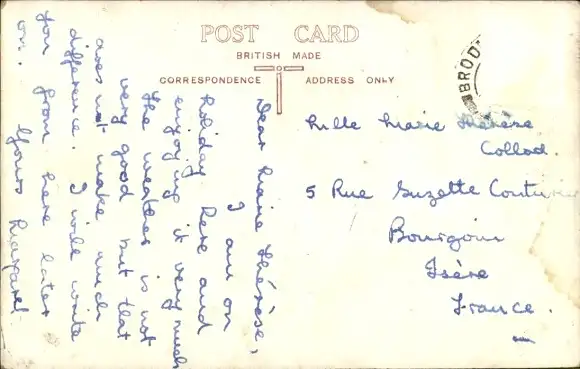 POST CARD
BRITISH MADE
CORRESPONDENCE
ADDRESS ONLY
BROD
Dear Marie Thérèse,
I am on
holiday here and
enjoying it very much
The weather is not
very good but that
does not make much
difference. I will write
you from here later
on. Yours Margaret
Mlle Marie Thérèse
Collod.
5 Rue Suzette
Bourgoin
Isère
France.